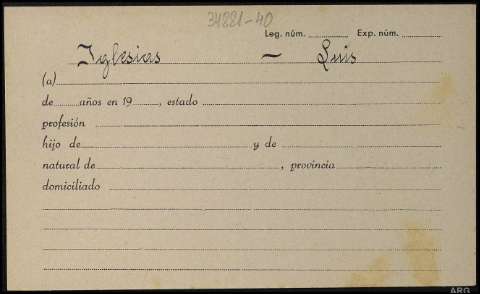 34881-40
Leg. núm. Exp. núm.
Iglesias — Luis
(a)
de años en 19 , estado
profesión
hijo de y de
natural de , provincia
domiciliado
ARG